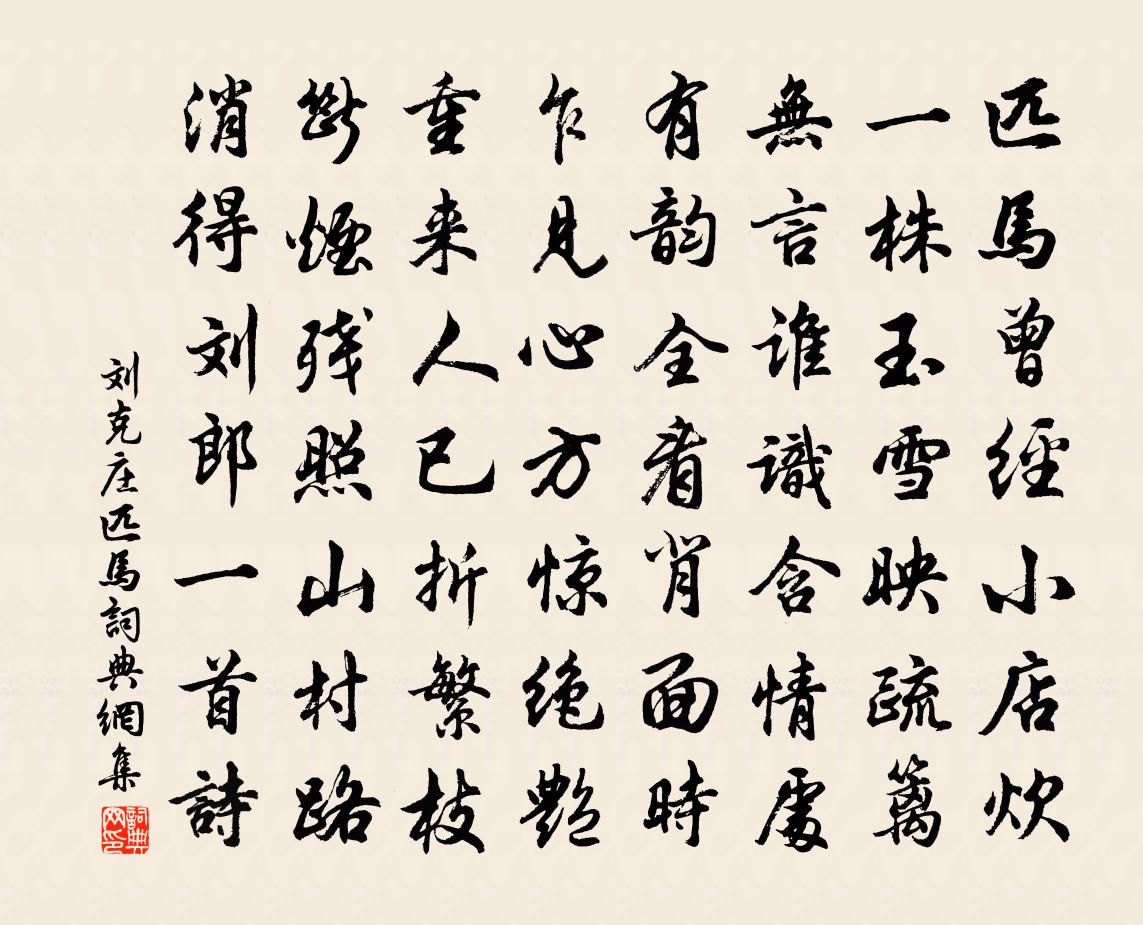 匹馬曾經小店炊
一株玉雪映疏篱
無言谁識含情處
有韵全看背面時
乍見心方惊绝艷
重来人已折繁枝
斷煙残照山村路
消得刘郎一首詩
刘克庄匹馬詞典網集
詞典网印